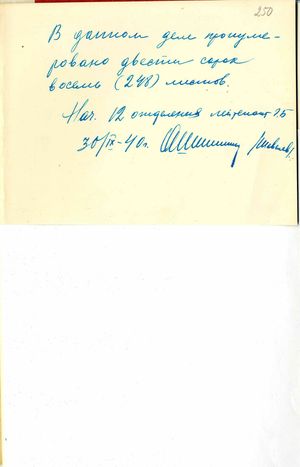 250
В данном дел прнуме-
ровано двести сорок
восемь (248) листов.
Нач. 12 отделения лейтенант ГБ
30/IX-40г.